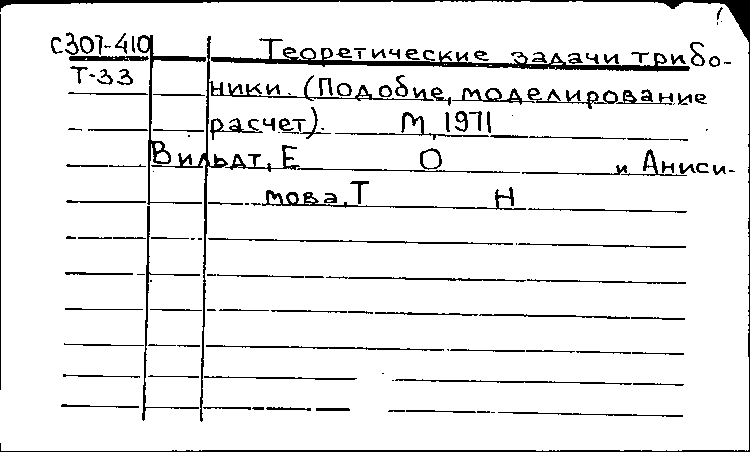 С307-410 Теоретические задачи трибо-
Т-33 ники. (Подобие, моделирование
расчет). М, 1971
Вильдт, Е О и Аниси-
мова, Т Н